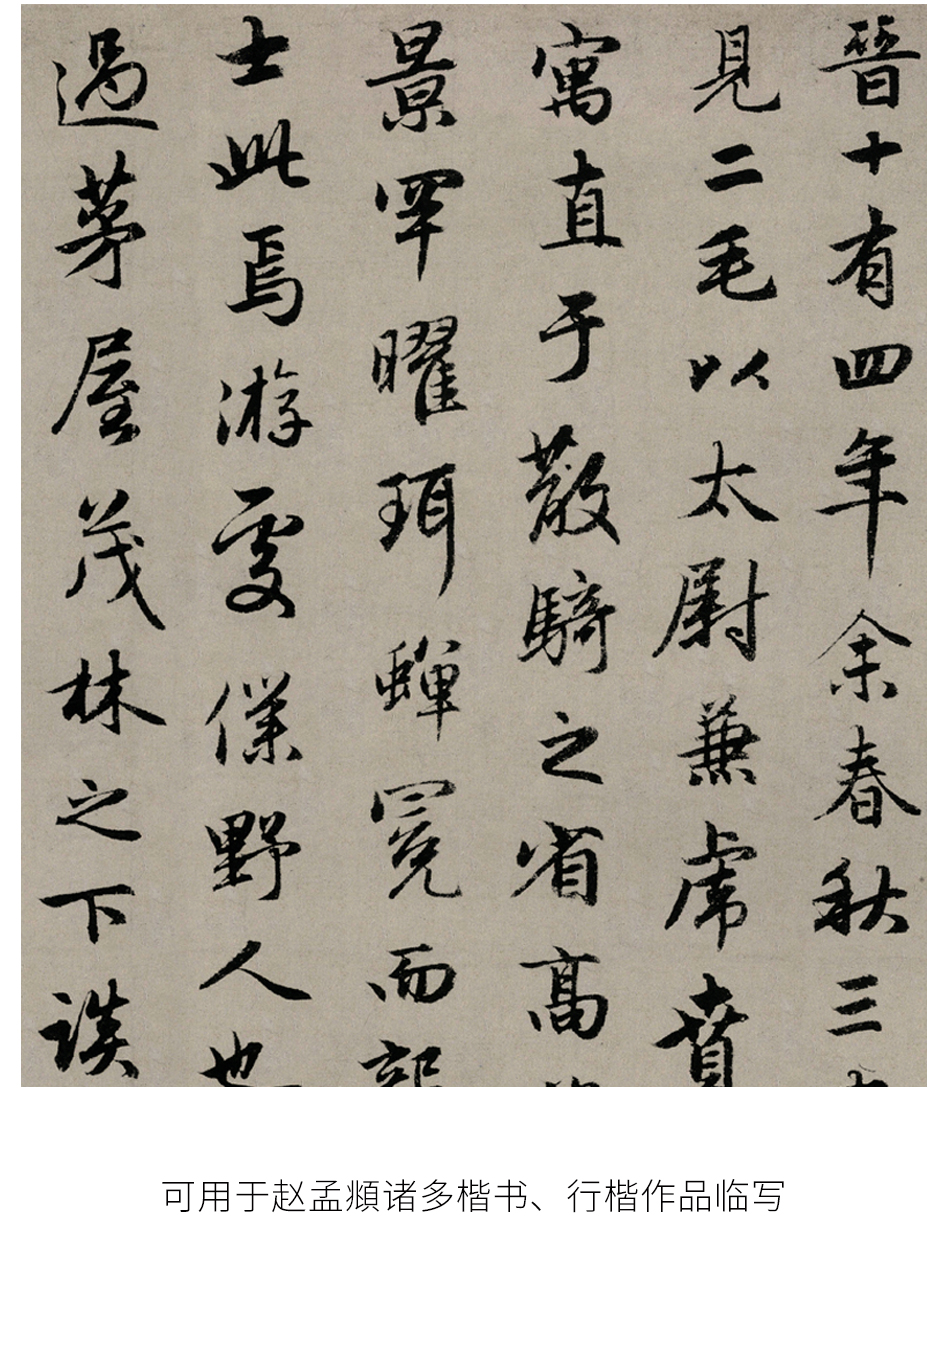 晉十有四年余春秋三
見二毛以太尉兼虎賁
寓直于散騎之省高
景罕曜珥蟬冕而
士此焉游處僕野人也
過茅屋茂林之下談
可用于赵孟頫诸多楷书、行楷作品临写